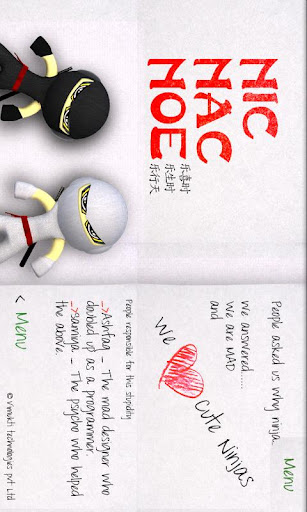 NIC
NAC
NOE
乐喜时
乐生时
乐行天
People asked us why ninja.
we answered.....
We are MAD
and
we cute Ninjas
Menu
People responsible for this stupidity
->Ashfaq - The mad designer who
doubled up as a programmer.
->samiya - The psycho who helped
the above
< Menu
© Vimukti technologies pvt Ltd